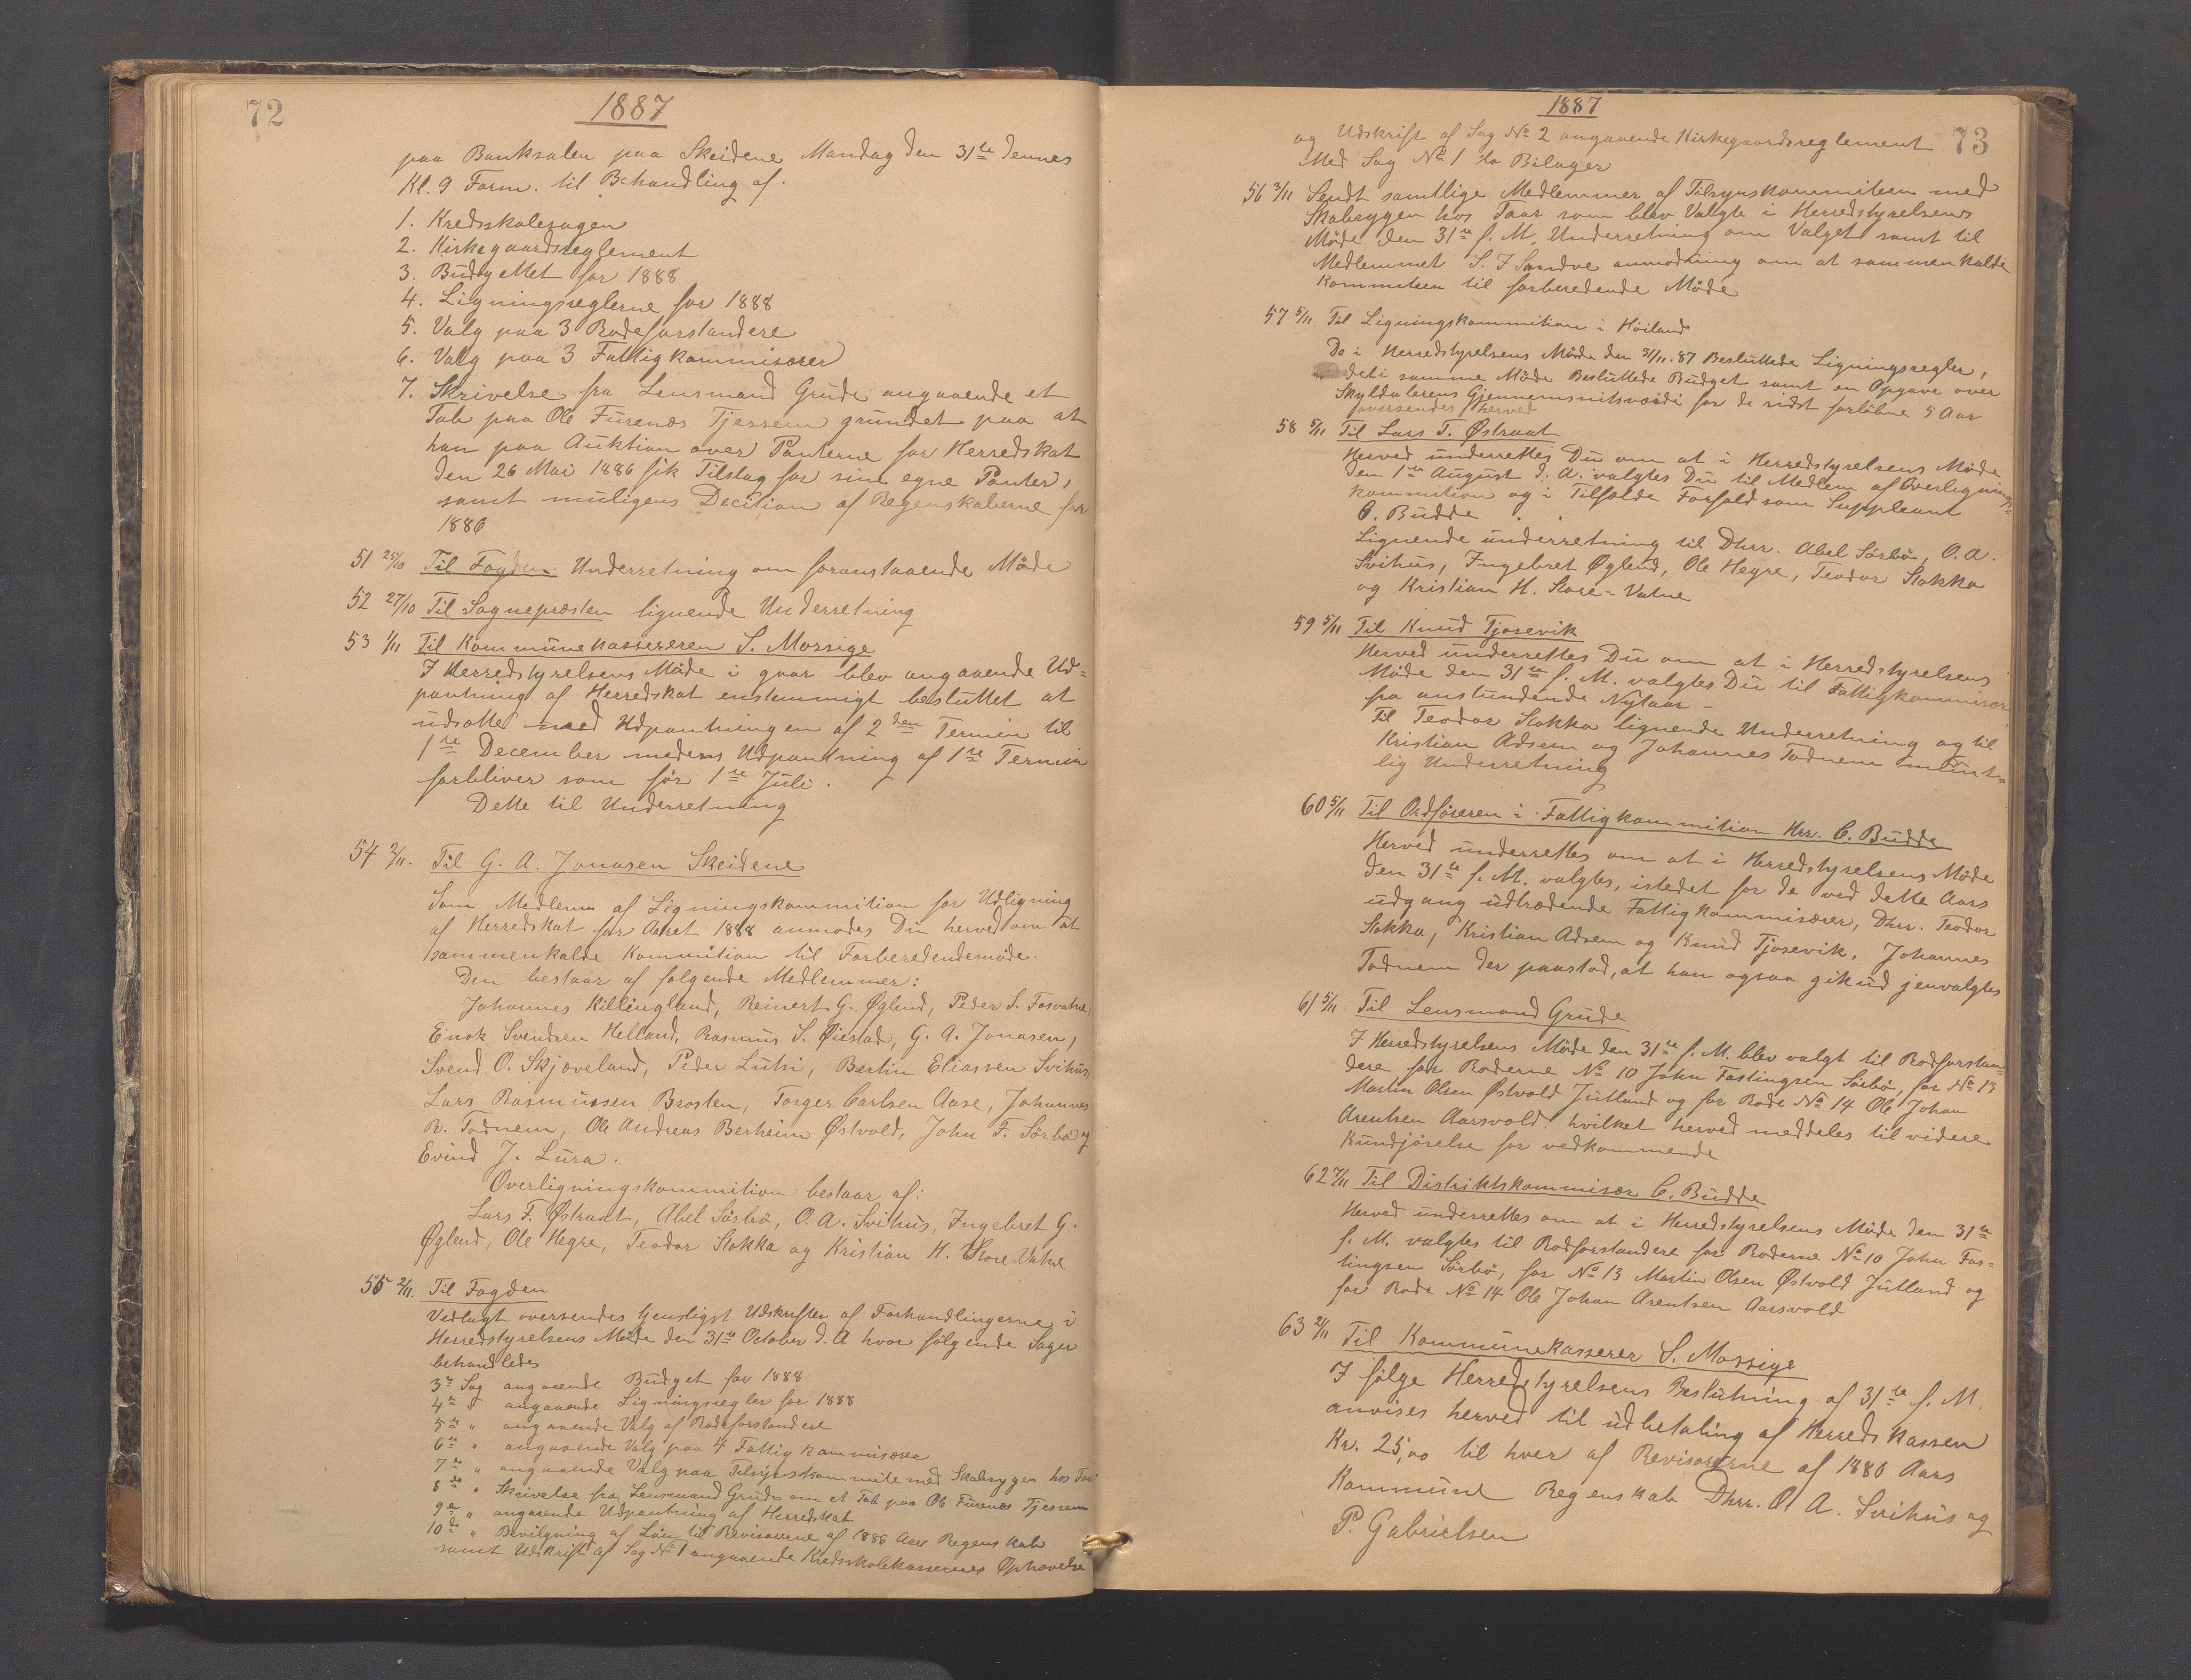 72
1887
paa Banksalen paa Skeidene Mandag den 31te dennes
Kl. 9 Form. til Behandling af.
1. Kredsskolesagen
2. Kirkegaardsreglement
3. Budgettet for 1888
4. Ligningsreglerne for 1888
5. Valg paa 3 Rodeforstandere
6. Valg paa 3 Fattigkommisærer
7. Skrivelse fra Lensmand Grude angaaende et
Tab paa Ole Furenes Tjessem grundet paa at
han paa Auktion over Panterne for Herredskat
den 26 Mai 1886 fik Tilslag for sine egne Panter,
samt muligens Decition af Regenskaberne for
1886
51 25/10 Til Fogden Underretning om foranstaaende Møde
52 27/10 Til Sognepræsten lignende Underretning
53 1/11 Til Kommunekassereren S. Mossige
I Herredstyrelsens Møde i gaar blev angaaende Ud=
pantning af Herredskat enstemmigt besluttet at
udsætte med Udpantningen af 2den Termin til
1te December medens Udpantning af 1te Termin
forbliver som før 1te Juli.
Dette til Underretning
54 2/11. Til G. A. Jonasen Skeidene
Som Medlem af Ligningskommition for Udligning
af Herredskat for Aaret 1888 anmodes Du herved om at
sammenkalde Kommition til Forberedendemøde.
Den bestaar af følgende Medlemmer:
Johannes Killingland, Reinert G. Øglend, Peder S. Fosvatne,
Enok Svendsen Helland, Rasmus S. Øiestad, G. A. Jonasen,
Svend O. Skjæveland, Peder Lutsi, Bertin Eliassen Svihus,
Lars Rasmussen Brosten, Torger Carlsen Aase, Johannes
R. Todnem, Ole Andreas Berheim Østvold, John F. Sørbø og
Evind J. Lura.
Overligningskommition bestaar af:
Lars T. Østraat, Abel Sørbø, O. A. Svihus, Ingebret G.
Øglend, Ole Hegre, Teodor Stokka og Kristian H. Store-Vatne
55 2/11. Til Fogden
Vedlagt oversendes tjenstligst Udskrifter af Forhandlingerne i
Herredstyrelsens Møde den 31te October d. A hvor følgende Sager
behandledes
3de Sag angaaende Budget for 1888
4de " angaaende Ligningsregler for 1888
5te " angaaende Valg af Rodeforstandere
6te " angaaende Valg paa 4 Fattigkommisærer
7de " angaaende Valg paa Tilsynskommite med Skabsygen hos Faar
8de " Skrivelse fra Lensmand Grude om et Tab paa Ole Furenes Tjessem
9de " angaaende Udpantning af Herredskat
10de " Bevilgning af Løn til Revisorerne af 1886 Aars Regenskab
samt Udskrift af Sag No 1 angaaende Kredsskolekassernes Ophævelse
1887
73
og Udskrift af Sag No 2 angaaende Kirkegaardsreglement
Med Sag No 1 to Bilager
56 3/11 Sendt samtlige Medlemmer af Tilsynskommiteen med
Skabsygen hos Faar som blev Valgte i Herredstyrelsens
Møde den 31te f. M. Underretning om Valget samt til
Medlemmet S. J Sandve anmodning om at sammenkalde
Kommiteen til forberedende Møde
57 5/11. Til Ligningskommition i Høiland
De i Herredstyrelsens Møde den 31/11. 87 Besluttede Ligningsregler,
det i samme Møde Besluttede Budget samt en Opgave over
Skyldalerens Gjennemsnitsværdi for de sidst forløbne 5 Aar
oversendes herved
58 5/11 Til Lars T. Østraat
Herved underrettes Du om at i Herredstyrelsens Møde
den 1te August d. A. valgtes Du til Medlem af Overlignings=
kommition og i Tilfælde Forfald som Suppleant
C. Budde
Lignende underretning til Dhrr. Abel Sørbø, O. A.
Svihus, Ingebret Øglend, Ole Hegre, Teodor Stokka
og Kristian H. Store-Vatne
59 5/11 Til Knud Tjosevik
Herved underrettes Du om at i Herredstyrelsens
Møde den 31te f. M. valgtes Du til Fattigkommisær
fra anstundende Nytaar -
Til Teodor Stokka lignende Underretning og til
Kristian Adsem og Johannes Todnem munt=
lig Underretning
60 5/11 Til Ordføreren i Fattigkommition Hrr. C. Budde
Herved underrettes om at i Herredstyrelsens Møde
den 31te f. M. valgtes, istedet for de ved dette Aars
udgang udtrædende Fattigkommisærer, Dhrr. Teodor
Stokka, Kristian Adsem og Knud Tjosevik. Johannes
Todnem der paastod, at han ogsaa gik ud jenvalgtes
61 5/11. Til Lensmand Grude
I Herredstyrelsens Møde den 31te f. M. blev valgt til Rodforstan=
dere for Roderne No 10 John Fastingsen Sørbø, for No 13
Martin Olsen Østvold Jutland og for Rode No 14 Ole Johan
Arentsen Aarsvold. hvilket herved meddeles til videre
Kundjørelse for vedkommende
62 7/11 Til Distriktskommisær C. Budde
Herved underrettes om at i Herredstyrelsens Møde den 31te
f. M. valgtes til Rodforstandere for Roderne No 10 John Fas=
tingsen Sørbø, for No 13 Martin Olsen Østvold Jutland og
for Rode No 14 Ole Johan Arentsen Aarsvold
63 21/11 Til Kommunekasserer S. Mossige
I følge Herredstyrelsens Beslutning af 31te f. M.
anvises herved til udbetaling af Herredskassen
Kr. 25,00 til hver af Revisorerne af 1886 Aars
Kommune Regenskab Dhrr. O A. Svihus og
P. Gabrielsen